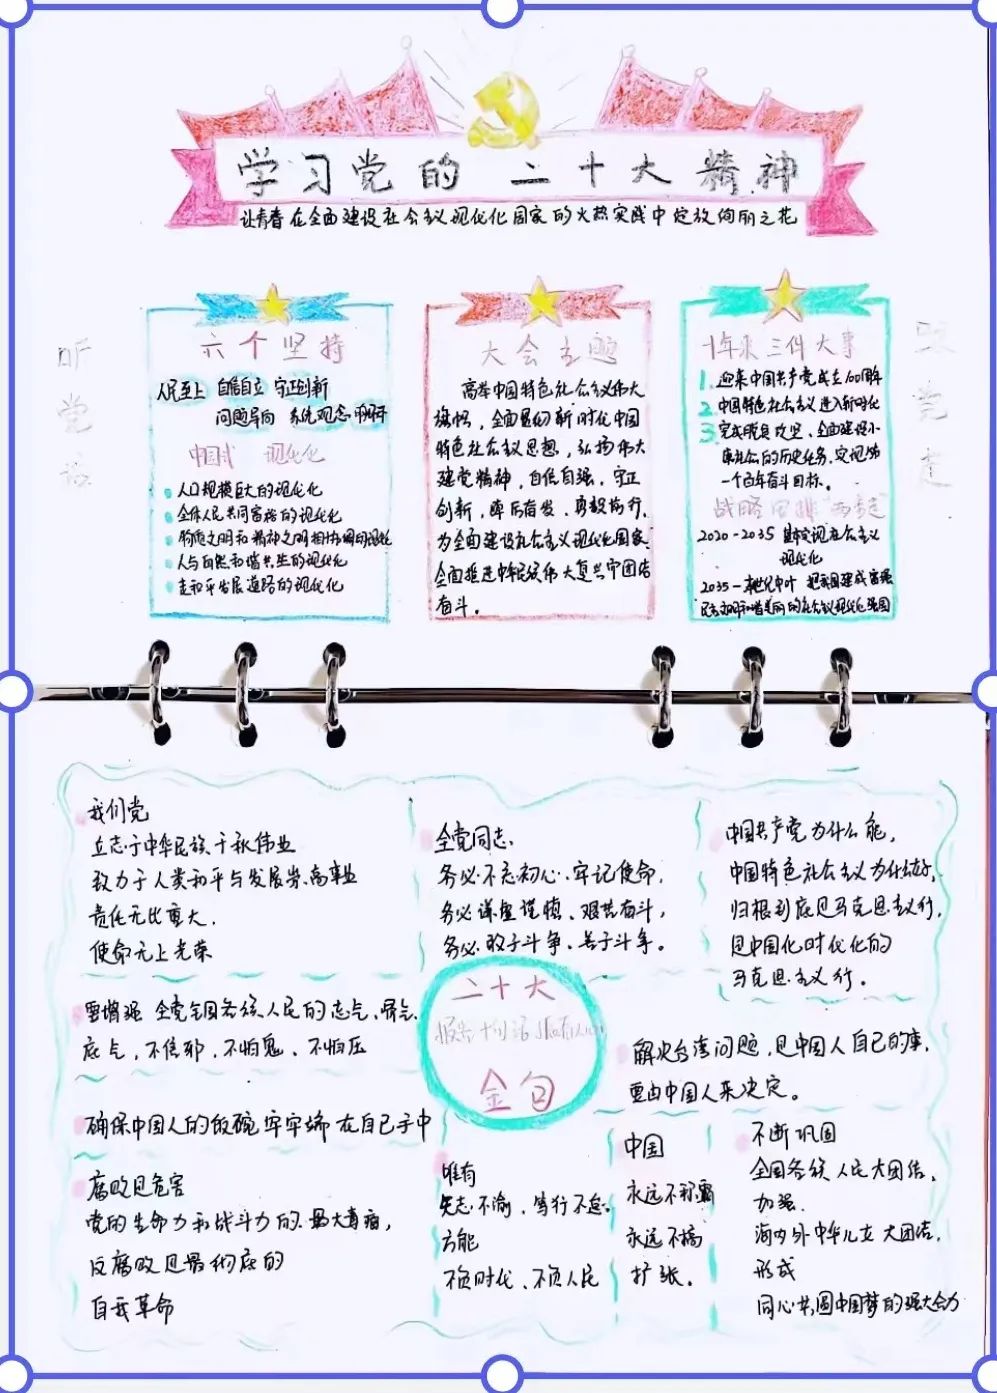 学习党的二十大精神
让青春在全面建设社会主义现代化国家的火热实践中绽放绚丽之花
听党话
跟党走
六个坚持
人民至上 自信自立 守正创新
问题导向 系统观念
中国式 现代化
人口规模巨大的现代化
全体人民共同富裕的现代化
物质文明和精神文明相协调的现代化
人与自然和谐共生的现代化
走和平发展道路的现代化
大会主题
高举中国特色社会主义伟大
旗帜，全面贯彻新时代中国
特色社会主义思想，弘扬伟大
建党精神，自信自强、守正
创新，踔厉奋发、勇毅前行，
为全面建设社会主义现代化国家、
全面推进中华民族伟大复兴而团结
奋斗。
十年来三件大事
1. 迎来中国共产党成立100周年
2. 中国特色社会主义进入新时代
3. 完成脱贫攻坚、全面建设小
康社会的历史任务，实现第
一个百年奋斗目标。
战略安排"两步走"
2020-2035 基本实现社会主义
现代化
2035-本世纪中叶 把我国建成富强
民主文明和谐美丽的社会主义现代化强国
我们党
立志于中华民族千秋伟业
致力于人类和平与发展崇高事业
责任无比重大，
使命无上光荣
全党同志，
务必不忘初心、牢记使命，
务必谦虚谨慎、艰苦奋斗，
务必敢于斗争、善于斗争。
中国共产党为什么能，
中国特色社会主义为什么好，
归根到底是马克思主义行，
是中国化时代化的
马克思主义行。
要增强全党全国各族人民的志气、骨气、
底气，不信邪、不怕鬼、不怕压
二十大
报告十句话
金句
解决台湾问题，是中国人自己的事，
要由中国人来决定。
确保中国人的饭碗牢牢端在自己手中
腐败是危害
党的生命力和战斗力的最大毒瘤，
反腐败是最彻底的
自我革命
唯有
矢志不渝、笃行不怠，
方能
不负时代、不负人民
中国
永远不称霸
永远不搞
扩张。
不断巩固
全国各族人民大团结，
加强
海内外中华儿女大团结，
形成
同心共圆中国梦的强大合力